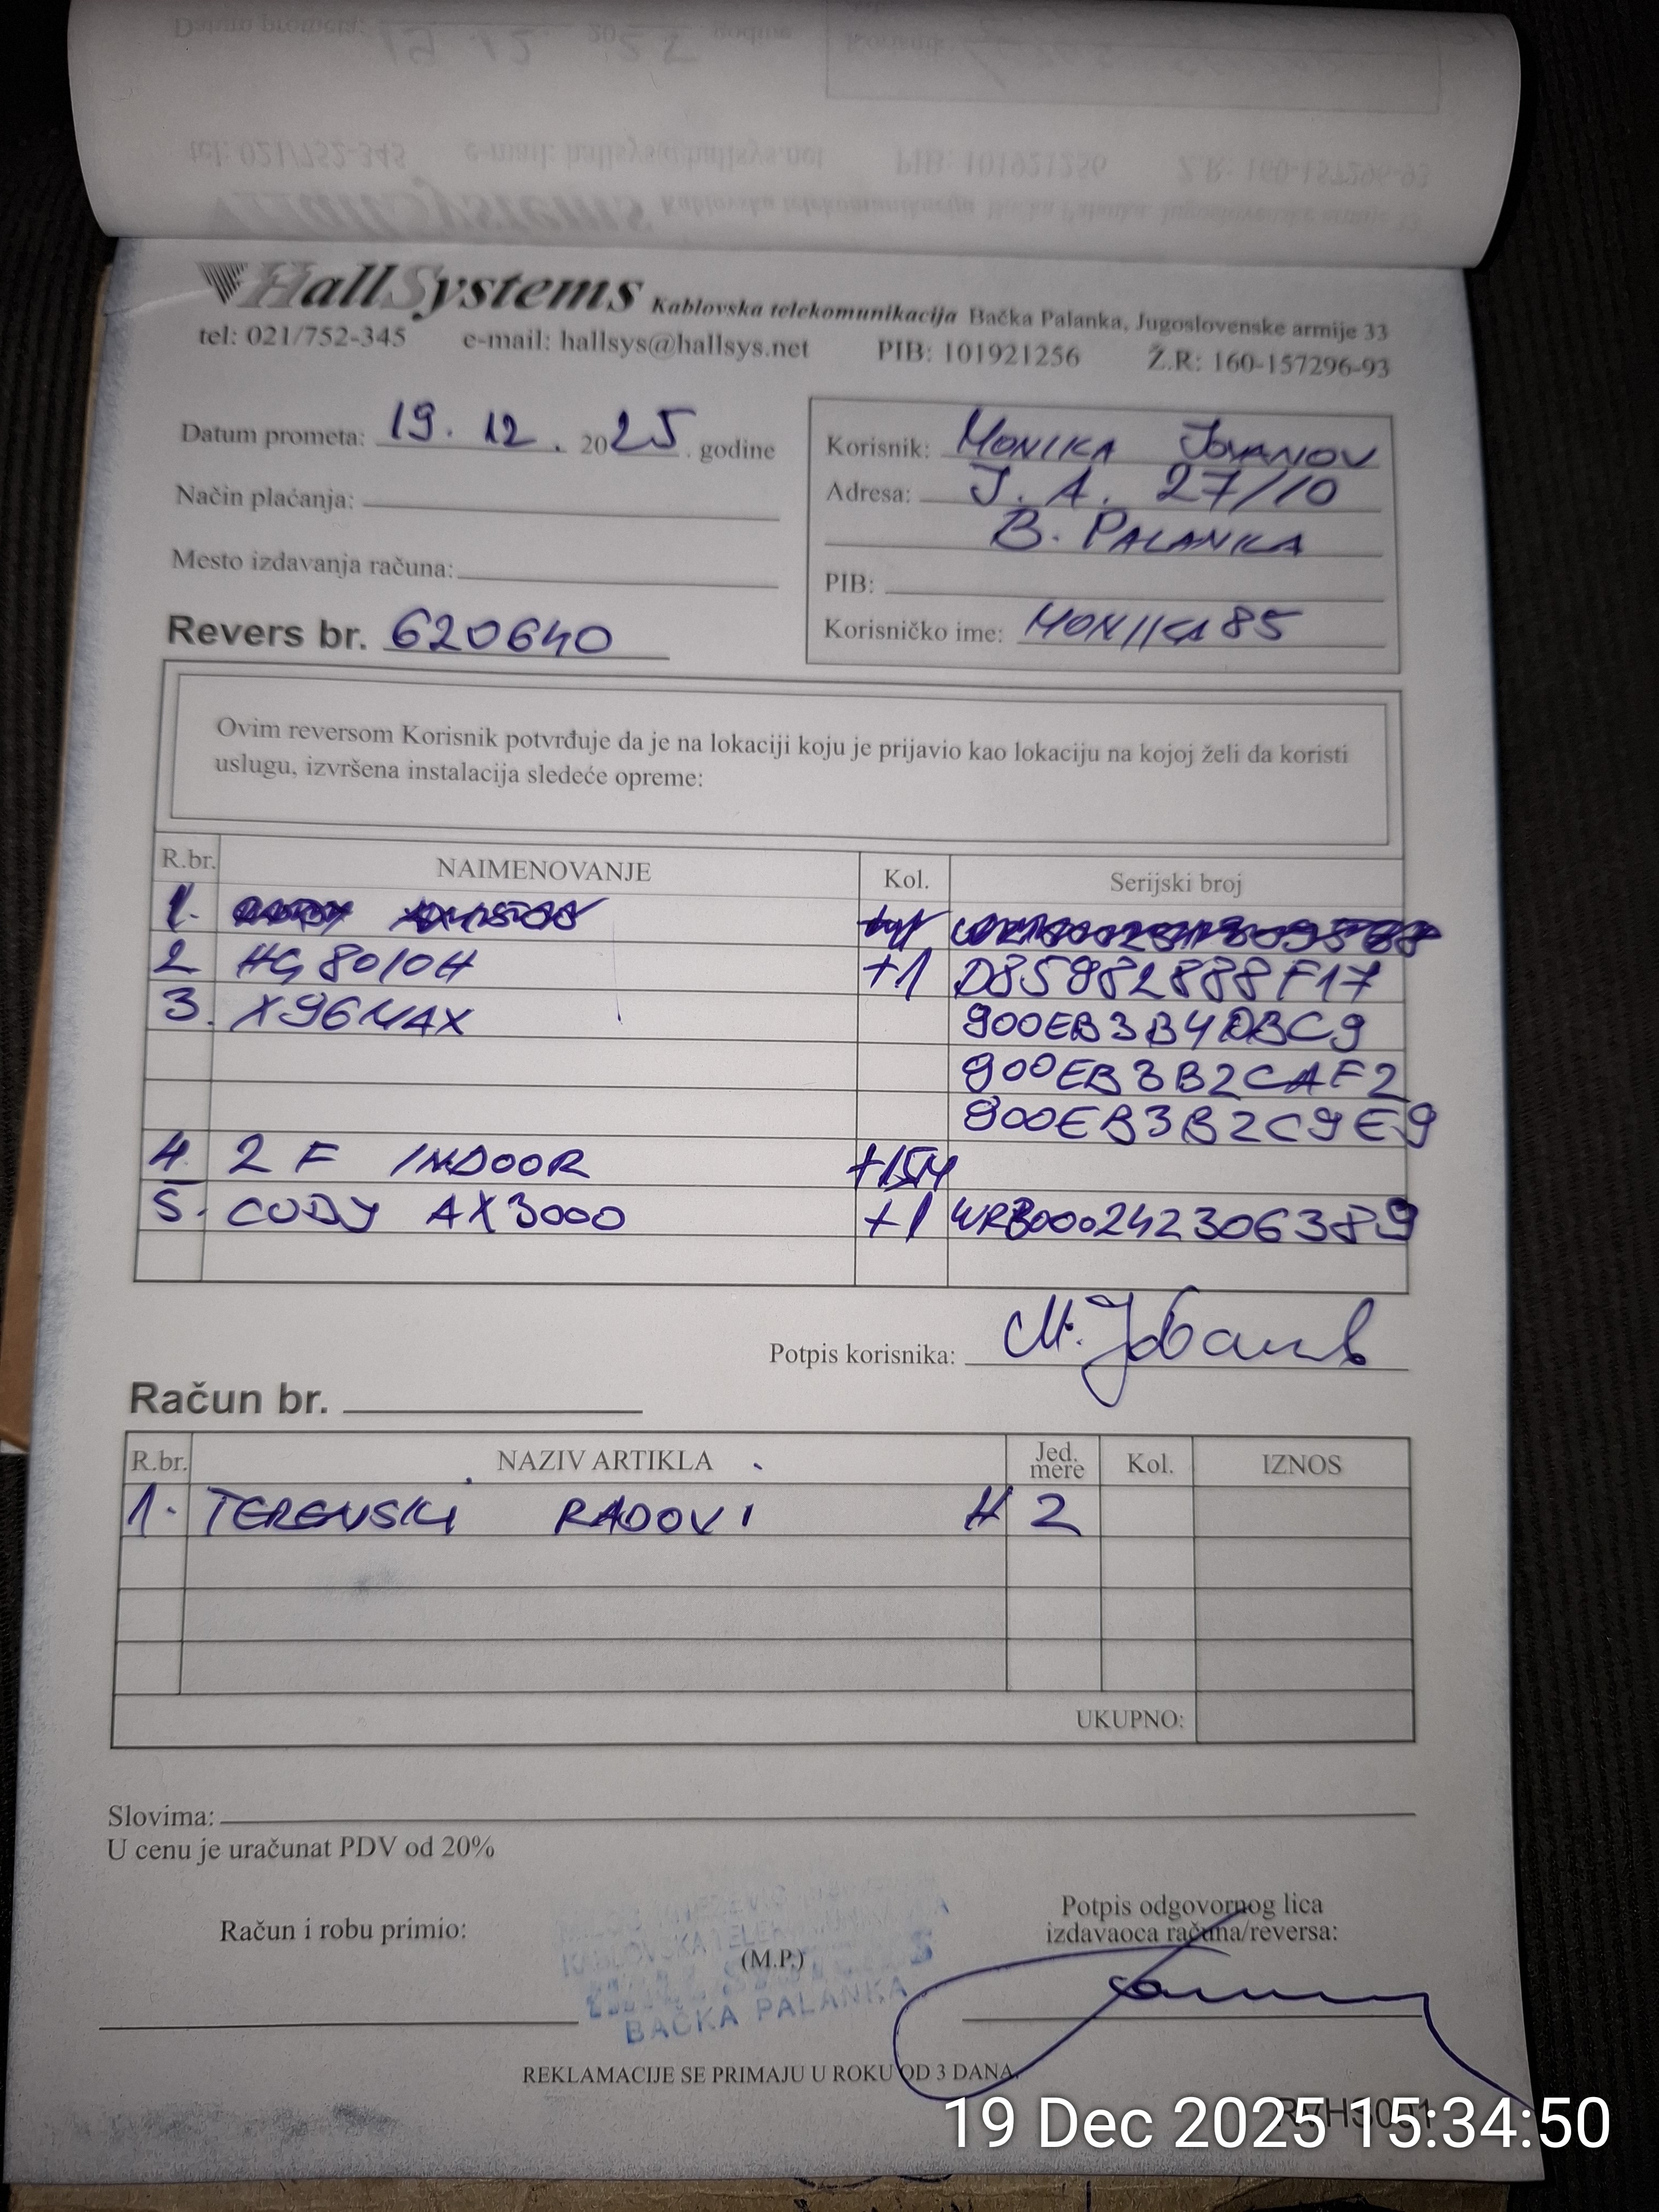 HallSystems Kablovska telekomunikacija Bačka Palanka, Jugoslovenske armije 33
tel: 021/752-345 e-mail: hallsys@hallsys.net PIB: 101921256 Ž.R: 160-157296-93
Datum prometa: 19. 12. 2025. godine
Način plaćanja:
Mesto izdavanja računa:
Revers br. 620640
Korisnik: MONIKA JOVANOV
Adresa: J. A. 27/10
B. PALANKA
PIB:
Korisničko ime: MONIIKA85
Ovim reversom Korisnik potvrđuje da je na lokaciji koju je prijavio kao lokaciju na kojoj želi da koristi
uslugu, izvršena instalacija sledeće opreme:
R.br. NAIMENOVANJE Kol. Serijski broj
1.
2 HG8010H +1 D85982888F17
3. X96MAX 900EB3B4DBC9
900EB3B2CAF2
900EB3B2C9E9
4. 2 F INDOOR +15M
5. CUDY AX3000 +1 WRB0002423063889
Potpis korisnika: M. Jovanov
Račun br.
R.br. NAZIV ARTIKLA Jed. mere Kol. IZNOS
1. TERENSKI RADOVI H 2
UKUPNO:
Slovima:
U cenu je uračunat PDV od 20%
Račun i robu primio:
(M.P.)
Potpis odgovornog lica
izdavaoca računa/reversa:
KABLOVSKA
BAČKA PALANKA
REKLAMACIJE SE PRIMAJU U ROKU OD 3 DANA.
19 Dec 2025 15:34:50